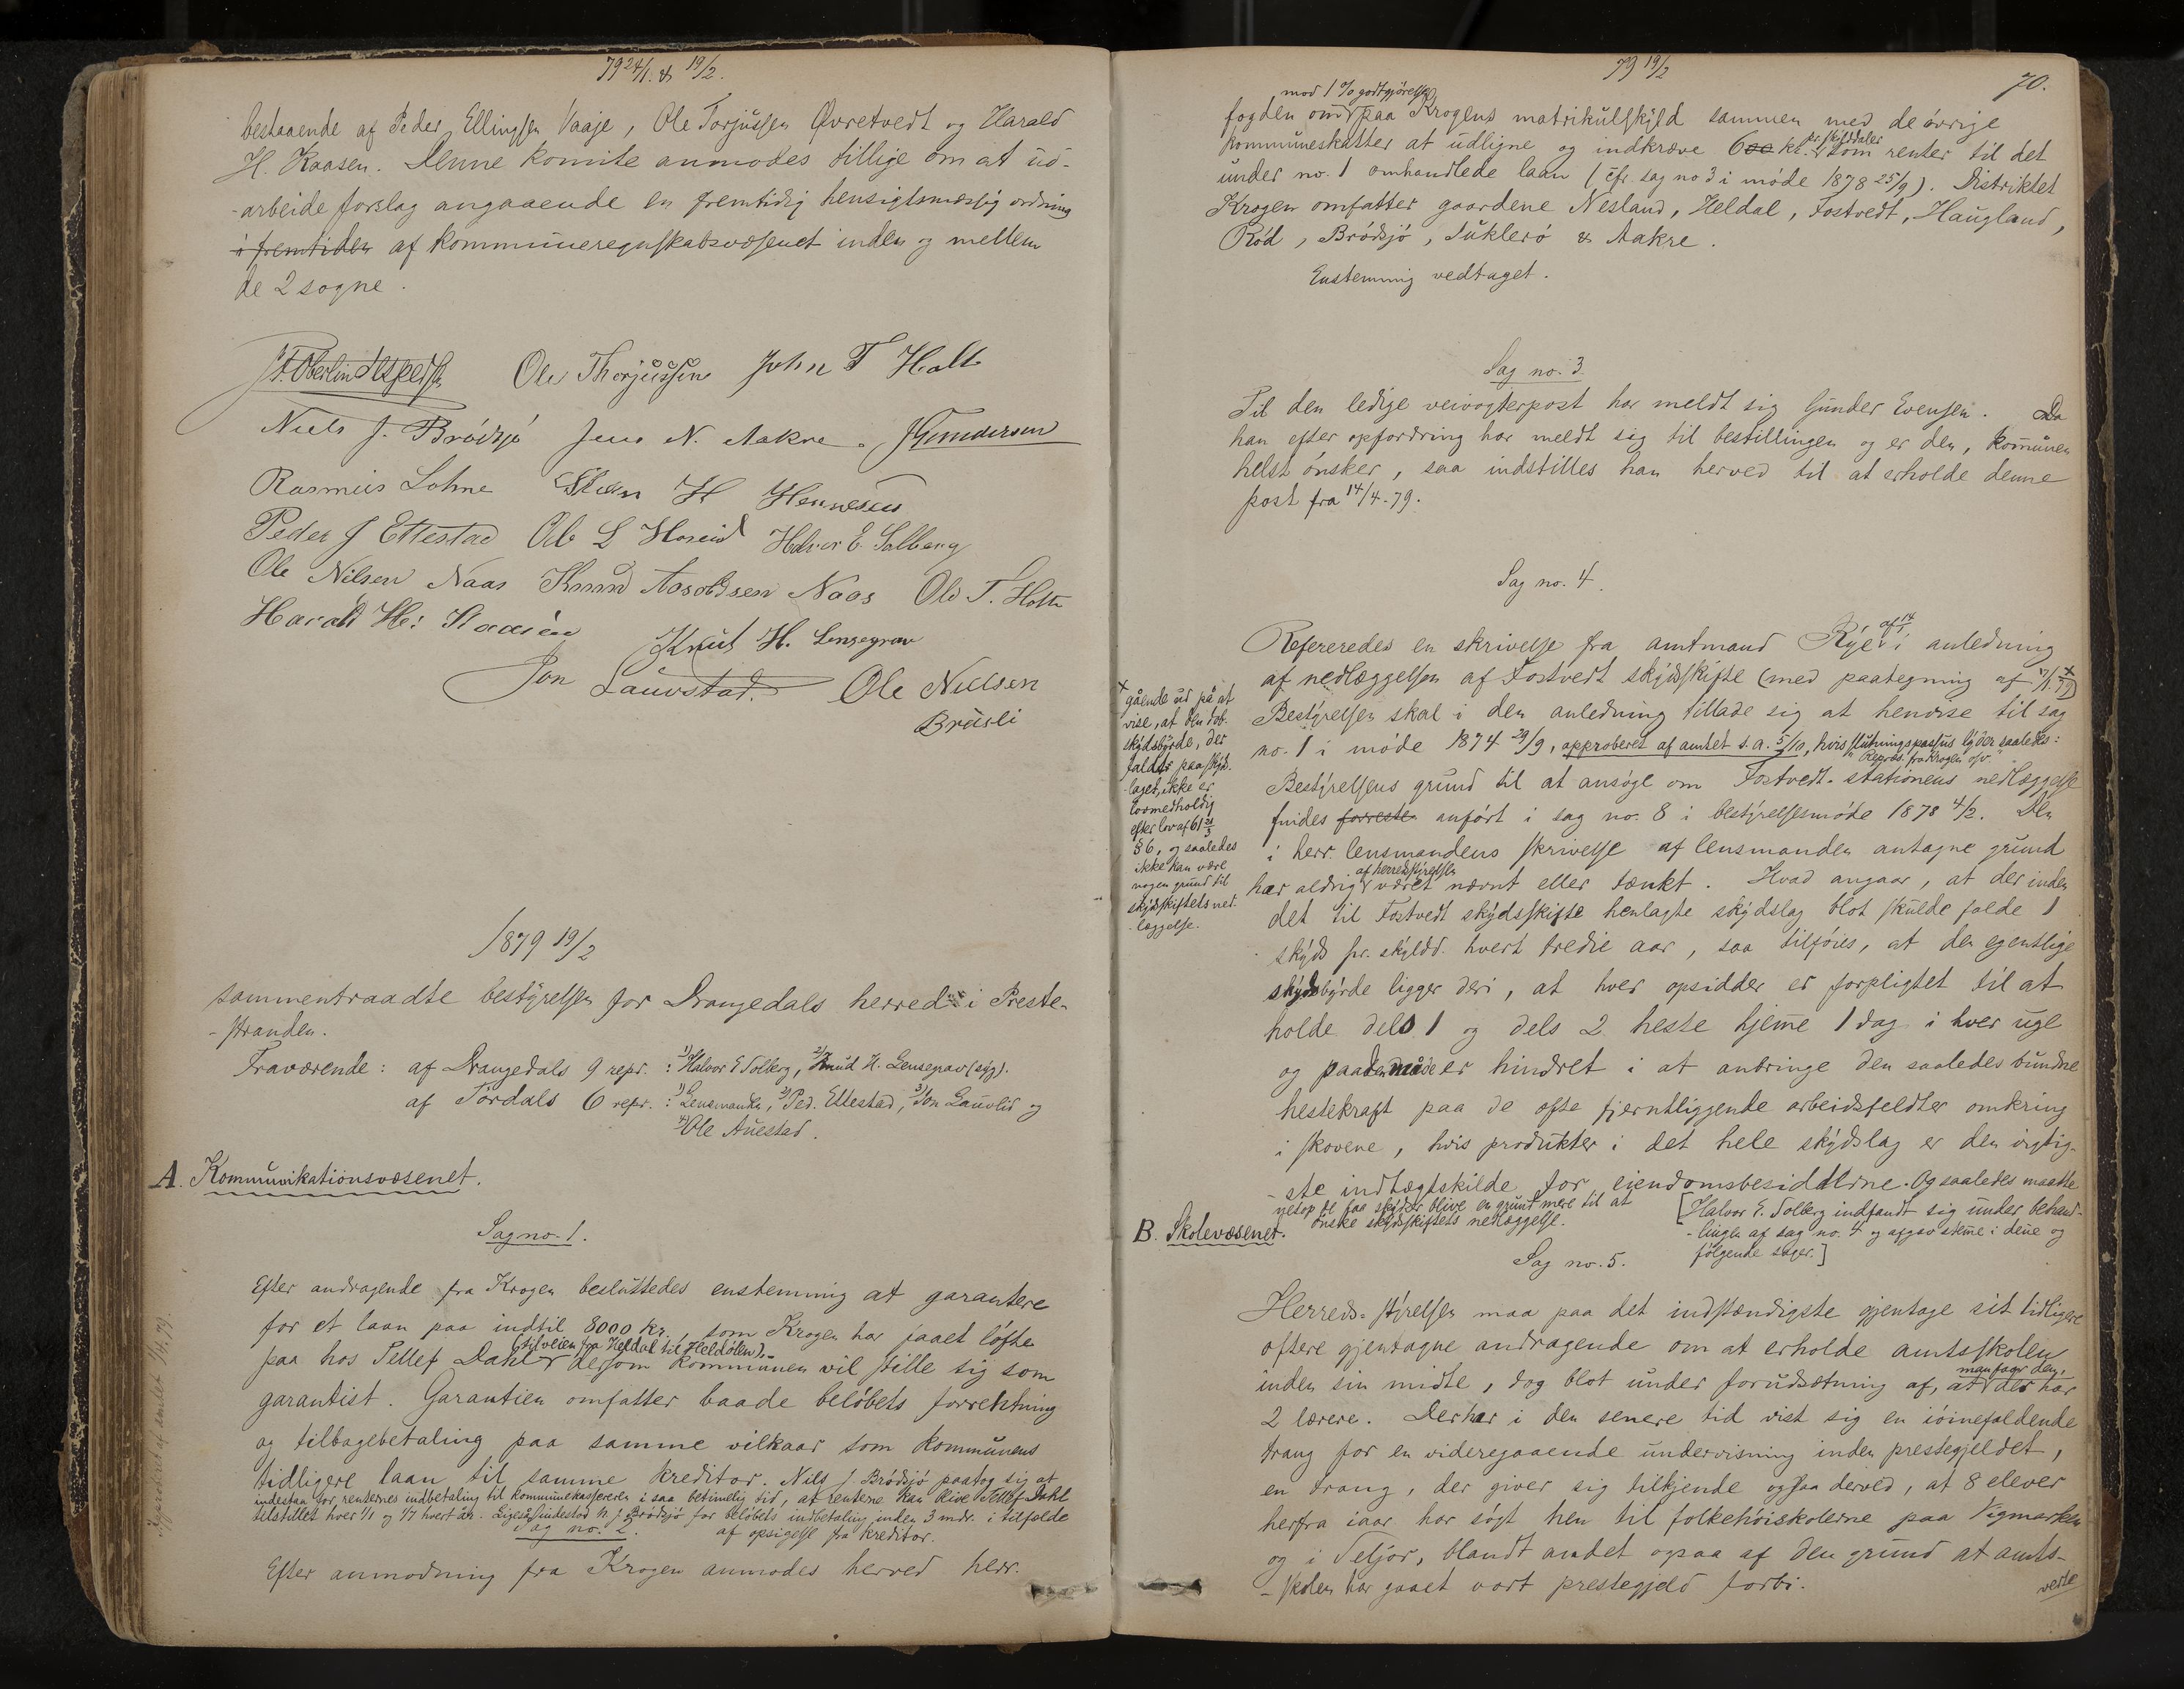 79 24/1. & 19/2.
bestaaende af Peder Ellingsen Vaaje, Ole Torjussen Øvretvedt og Harald
H. Kaasen. Denne komite anmodes tillige om at ud-
-arbeide forslag angaaende en fremtidig hensigtsmæssig ordning
i fremtiden af kommuneregnskabsvæsenet inden og mellem
de 2 sogne.
Ole Thorjussen John T Holte
Niels J. Brødsjø Jens N. Aakre. J Gundersen
Rasmus Lohne Sten H Hennseus
Peder J Ettestad Ole L Hoseid Halvor E. Solberg
Ole Nilsen Naas Knud Aasoldsen Naas Ole T. Holte
Harald H: Kaasen
Knut H. Lensegrav
Jon Lauvstad. Ole Nielsen
Bräsli
1879 19/2
sammentraadte bestyrelsen for Drangedals herred i Preste-
-stranden.
Fraværende: af Drangedals 9 repr.: 1) Halvor E Solberg, 2) Knud H. Lensegrav (syg).
af Tørdals 6 repr.: 1) Lensmanden, 2) Ped. Ettestad, 3) Jon Lauvlid og
4) Ole Auestad.
A. Kommunikationsvæsenet.
Sag no. 1.
Efter andragende fra Krogen besluttedes enstemmig at garantere
for et laan paa indtil 8000 kr., som Krogen har faaet løfte
paa hos Tellef Dahl (til veien fra Heldal til Heldølen), dersom kommunen vil stille sig som
garantist. Garantien omfatter baade beløbets forrentning
og tilbagebetaling paa samme vilkaar som kommunens
tidligere laan til samme kreditor. Nils J. Brødsjø paatog sig at
indestaa for renternes indbetaling til kommunekassereren i saa betimelig tid, at renterne kan blive Tellef Dahl
tilstillet hver 1/1 og 1/7 hvert år. Ligeså indestod N. J. Brødsjø for beløbets indbetaling inden 3 mdr. i tilfælde
af opsigelse fra kreditor.
Sag no. 2.
Efter anmodning fra Krogen anmodes herred herr.
Approberet af amtet 1/4 79.
79 19/2
70.
fogden om mod 1 % godtgjørelse paa Krogens matrikulskyld sammen med de øvrige
kommuneskatter at udligne og indkræve 600 kr. pr. skylddaler som renter til det
under no. 1 omhandlede laan (cfr. sag no 3 i møde 1878 25/9). Distriktet
Krogen omfatter gaardene Nesland, Heldal, Fostvedt, Haugland,
Rød, Brødsjø, Suklerø & Aakre.
Enstemmig vedtaget.
Sag no. 3
Til den ledige veivogterpost har meldt sig Gunder Evensen. Da
han efter opfordring har meldt sig til bestillingen og er den, kommunen
helst ønsker, saa indstilles han herved til at erholde denne
post fra 14/4-79.
Sag no. 4.
Refereredes en skrivelse fra amtmand Rye af 14/1 i anledning
af nedlæggelsen af Fostvedt skydsskifte (med paategning af 17/1. 79) x
Bestyrelsen skal i den anledning tillade sig at henvise til sag
no. 1 i møde 1874 29/9, approberet af amtet s. a. 5/10, hvis slutningspassus lyder saaledes:
"Repræs. fra Krogen osv."
Bestyrelsens grund til at ansøge om Fostvedt-stationens nedlæggelse
findes forreste anført i sag no. 8 i bestyrelsesmøde 1878 4/2. Den
i herr. lensmandens skrivelse af lensmanden antagne grund
har aldrig af herredsstyrelsen været nævnt eller tænkt. Hvad angaar, at der inden
det til Fostvedt skydsskifte henlagte skydslag blot skulde falde 1
skyds pr. skyldd. hvert tredie aar, saa tilføies, at den egentlige
skydsbyrde ligger deri, at hver opsidder er forpligtet til at
holde dels 1 og dels 2 heste hjemme 1 dag i hver uge
og paa den måde er hindret i at anbringe den saaledes bundne
hestekraft paa de ofte fjerntliggende arbeidsfeldter omkring
i skovene, hvis produkter i det hele skydslag er den vigtig-
-ste indtægtskilde for eiendomsbesidderne. Og saaledes maatte
netop de faa skydser blive en grund mere til at
ønske skydsskiftets nedlæggelse.
[Halvor E. Solberg indfandt sig under behand-
-lingen af sag no. 4 og afgav stemme i denne og
følgende sager.]
x gående ud på at
vise, at den tob.
skydsbyrde, der
falder paa skyds-
laget, ikke er
lovmedholdig
efter lov af 61 21/3
§ 6, og saaledes
ikke kan være
nogen grund til
skydsskiftets ned-
-læggelse.
B. Skolevæsenet.
Sag no. 5.
Herreds-styrelsen maa paa det indstændigste gjentage sit tidligere
oftere gjentagne andragende om at erholde amtsskolen
inden sin midte, dog blot under forudsætning af, at man faar den, der har
2 lærere. Der har i den senere tid vist sig en iøinefaldende
trang for en videregaaende undervisning inden prestegjeldet,
en trang, der giver sig tilkjende ogsaa derved, at 8 elever
herfra iaar har søgt hen til folkehøiskolerne paa Vegmarken
og i Seljor, blandt andet ogsaa af den grund at amts-
-skolen har gaaet vort prestegjeld forbi.
verte